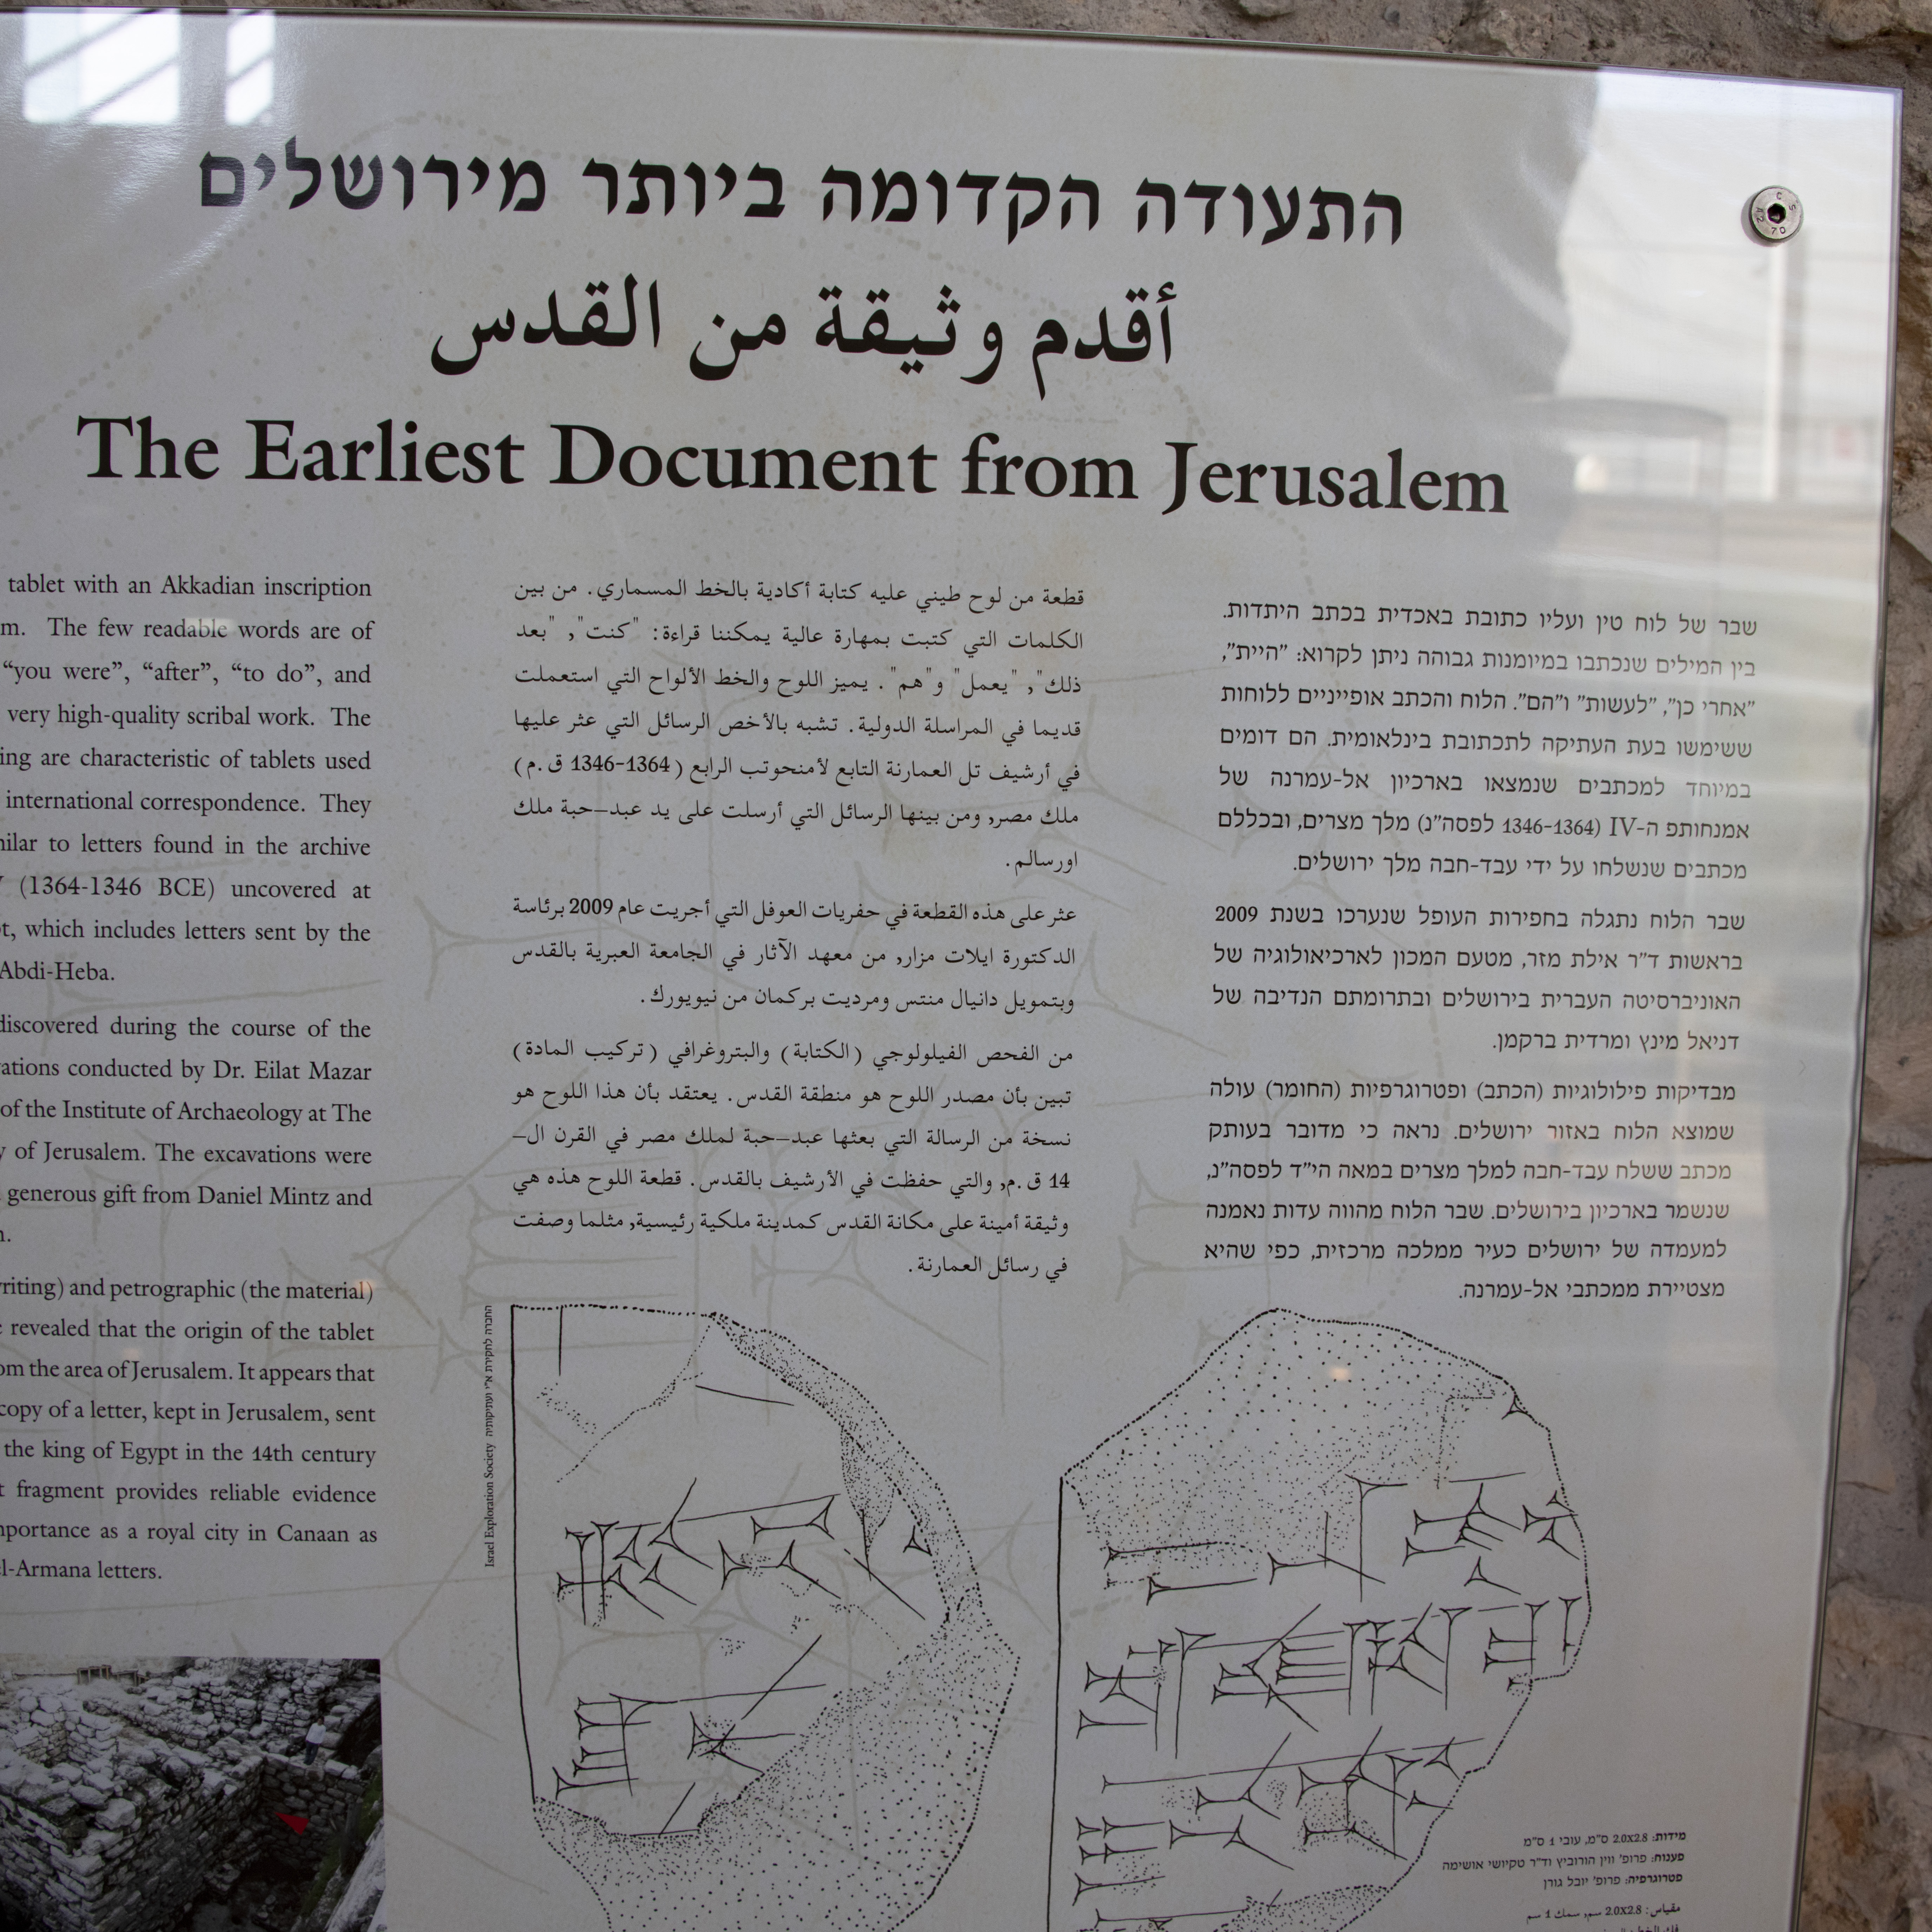 התעודה הקדומה ביותר מירושלים
أقدم وثيقة من القدس
The Earliest Document from Jerusalem
tablet with an Akkadian inscription
The few readable words are of
“you were”, “after”, “to do”, and
very high-quality scribal work. The
are characteristic of tablets used
international correspondence. They
to letters found in the archive
(1364-1346 BCE) uncovered at
which includes letters sent by the
Abdi-Heba.
discovered during the course of the
conducted by Dr. Eilat Mazar
of the Institute of Archaeology at The
of Jerusalem. The excavations were
generous gift from Daniel Mintz and
and petrographic (the material)
revealed that the origin of the tablet
the area of Jerusalem. It appears that
copy of a letter, kept in Jerusalem, sent
the king of Egypt in the 14th century
fragment provides reliable evidence
as a royal city in Canaan as
letters.
قطعة من لوح طيني عليه كتابة أكادية بالخط المسماري. من بين
الكلمات التي كتبت بمهارة عالية يمكننا قراءة: "كنت", "بعد
ذلك", "يعمل" و"هم". يميز اللوح والخط الألواح التي استعملت
قديما في المراسلة الدولية. تشبه بالأخص الرسائل التي عثر عليها
في أرشيف تل العمارنة التابع لأمنحوتب الرابع (1364-1346 ق.م)
ملك مصر, ومن بينها الرسائل التي أرسلت على يد عبد-حبة ملك
اورسالم.
عثر على هذه القطعة في حفريات العوفل التي أجريت عام 2009 برئاسة
الدكتورة ايلات مزار, من معهد الآثار في الجامعة العبرية بالقدس
وبتمويل دانيال منتس ومرديت بركمان من نيويورك.
من الفحص الفيلولوجي (الكتابة) والبتروغرافي (تركيب المادة)
تبين بأن مصدر اللوح هو منطقة القدس. يعتقد بأن هذا اللوح هو
نسخة من الرسالة التي بعثها عبد-حبة لملك مصر في القرن ال-
14 ق.م, والتي حفظت في الأرشيف بالقدس. قطعة اللوح هذه هي
وثيقة أمينة على مكانة القدس كمدينة ملكية رئيسية, مثلما وصفت
في رسائل العمارنة.
שבר של לוח טין ועליו כתובת באכדית בכתב היתדות.
בין המילים שנכתבו במיומנות גבוהה ניתן לקרוא: "היית",
"אחרי כן", "לעשות" ו"הם". הלוח והכתב אופייניים ללוחות
ששימשו בעת העתיקה לתכתובת בינלאומית. הם דומים
במיוחד למכתבים שנמצאו בארכיון אל-עמרנה של
אמנחותפ ה-IV (1346-1364 לפסה"נ) מלך מצרים, ובכללם
מכתבים שנשלחו על ידי עבד-חבה מלך ירושלים.
שבר הלוח נתגלה בחפירות העופל שנערכו בשנת 2009
בראשות ד"ר אילת מזר, מטעם המכון לארכיאולוגיה של
האוניברסיטה העברית בירושלים ובתרומתם הנדיבה של
דניאל מינץ ומרדית ברקמן.
מבדיקות פילולוגיות (הכתב) ופטרוגרפיות (החומר) עולה
שמוצא הלוח באזור ירושלים. נראה כי מדובר בעותק
מכתב ששלח עבד-חבה למלך מצרים במאה הי"ד לפסה"נ,
שנשמר בארכיון בירושלים. שבר הלוח מהווה עדות נאמנה
למעמדה של ירושלים כעיר ממלכה מרכזית, כפי שהיא
מצטיירת ממכתבי אל-עמרנה.
Israel Exploration Society החברה לחקירת א"י ועתיקותיה
מידות: 2.0x2.8 ס"מ, עובי 1 ס"מ
פענוח: פרופ' ווין הורוביץ וד"ר טקיושי אושימה
פטרוגרפיה: פרופ' יובל גורן
مقياس: 2.0x2.8 سم, سمك 1 سم